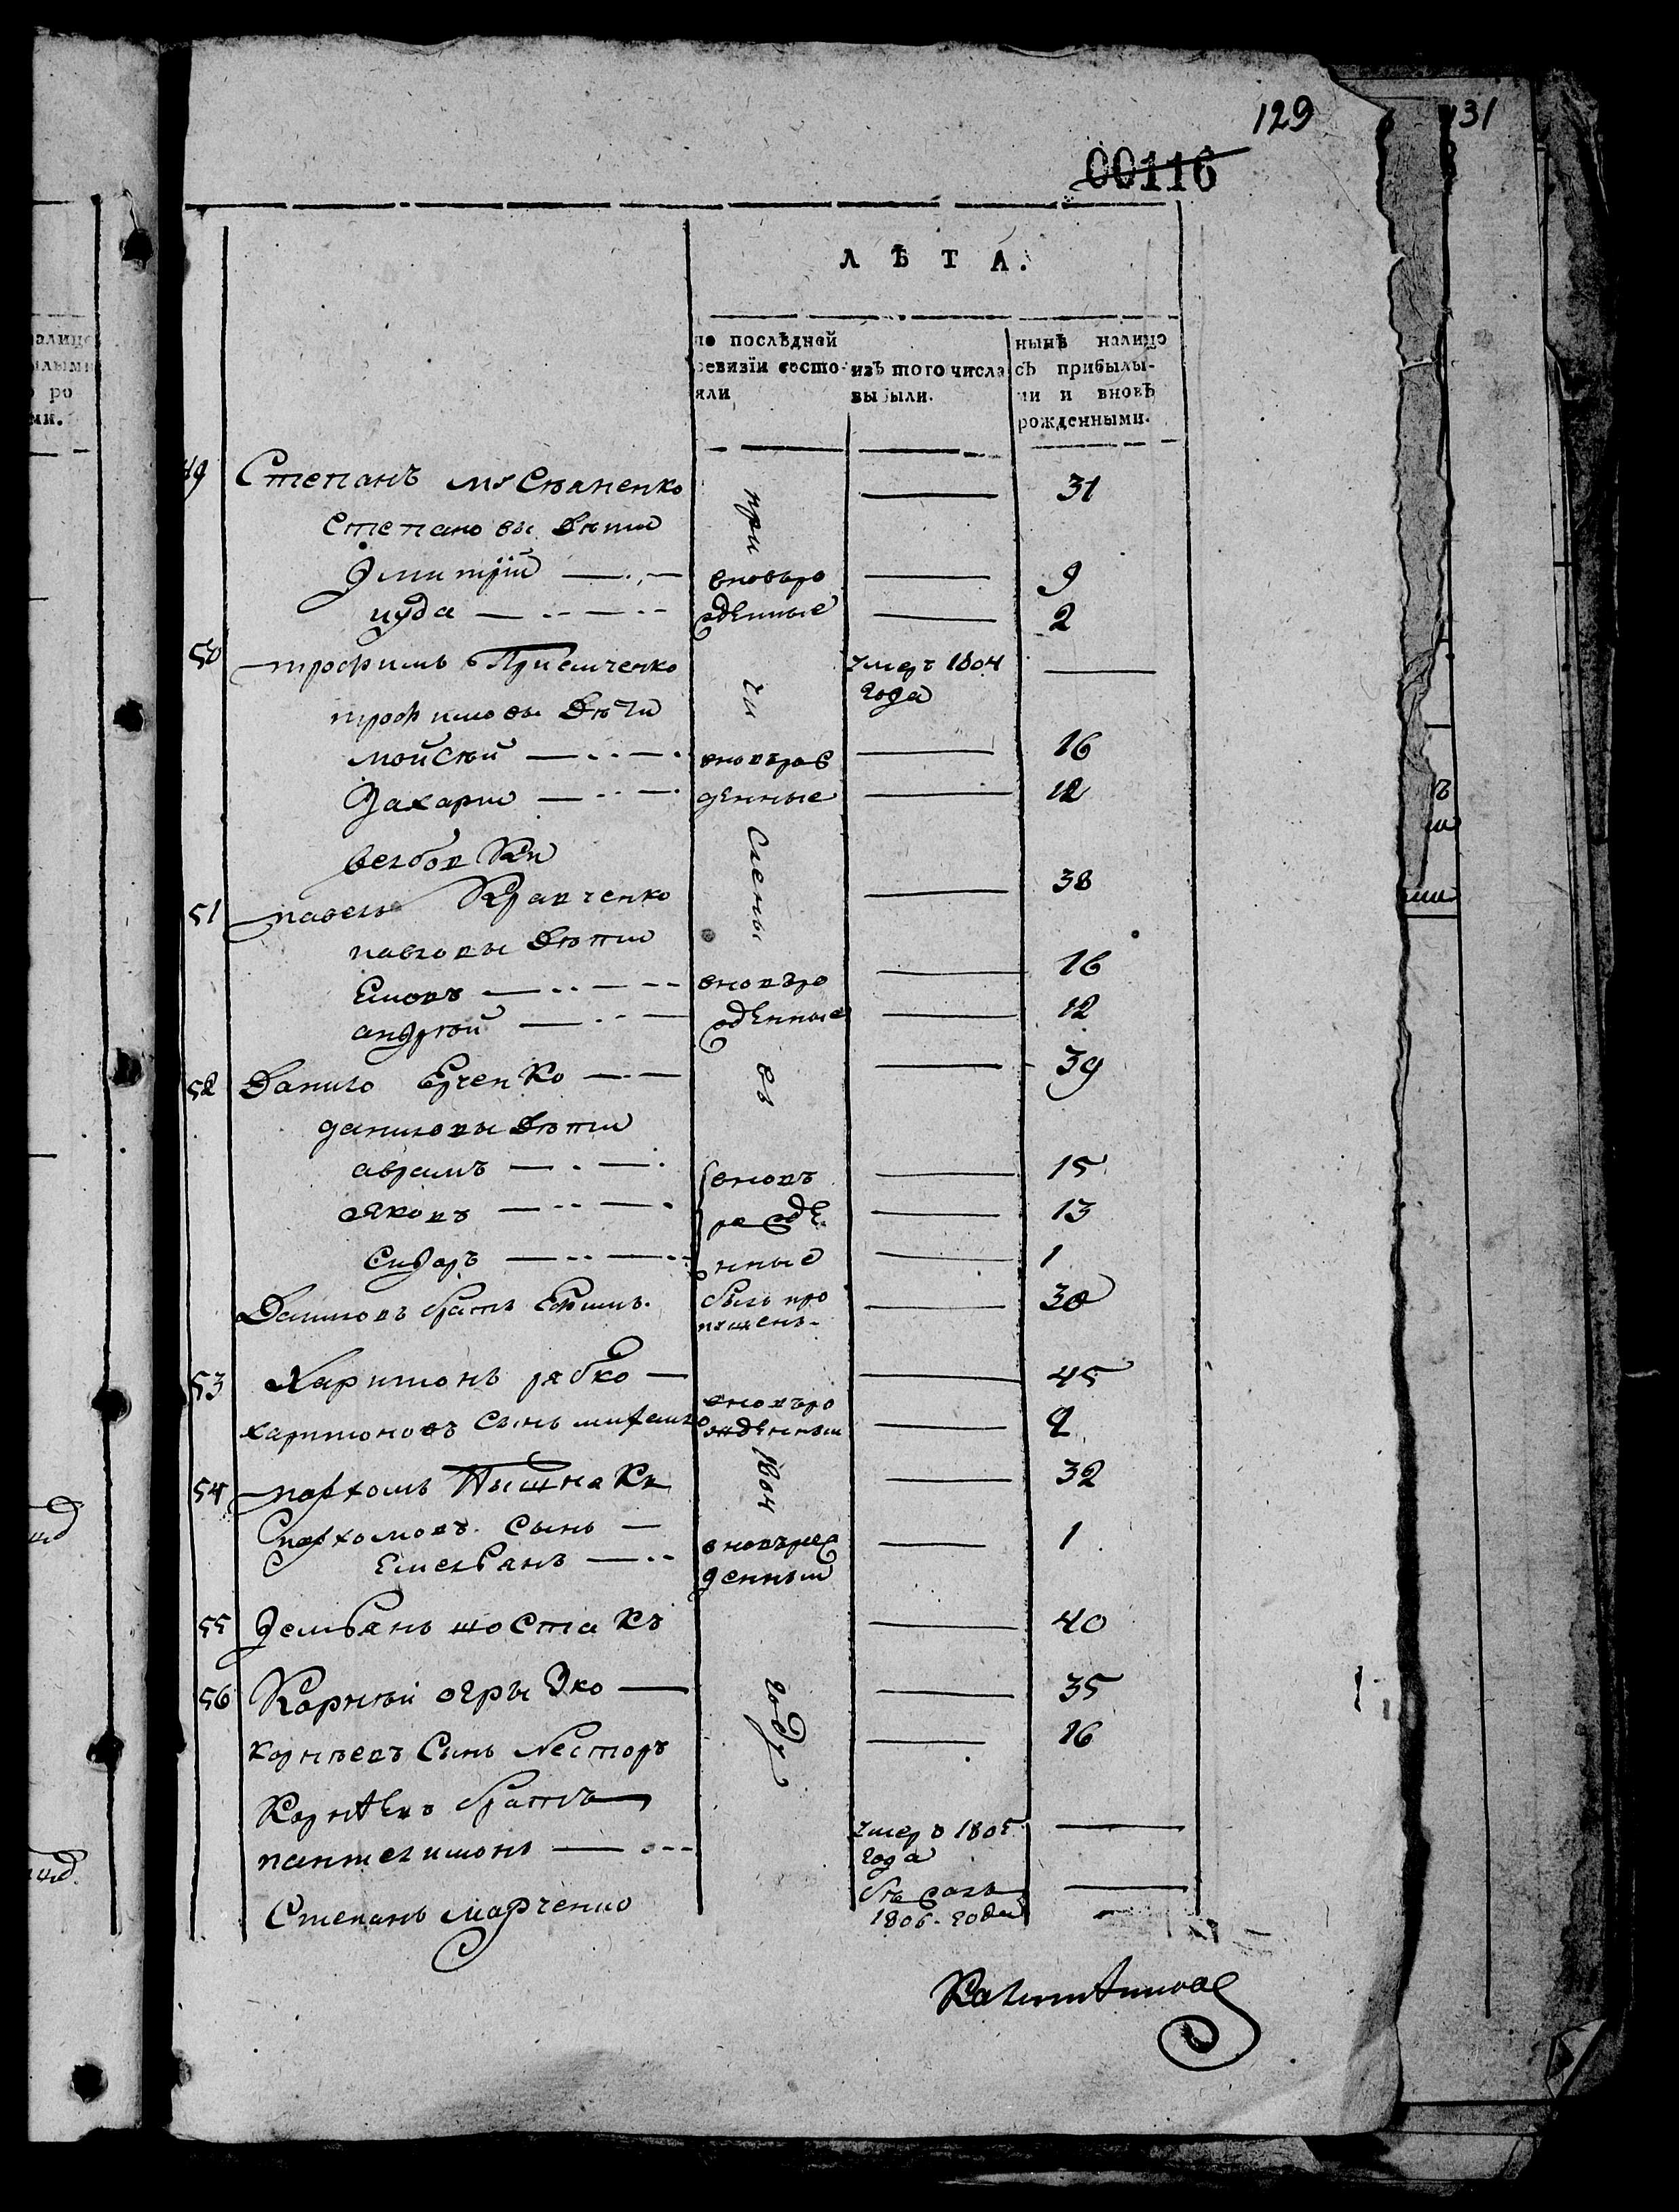 129
131
00116
ЛѢТА.
по послѣдней ревизїи состояли
изъ того числа выбыли.
нынѣ налицо съ прибылыми и вновь рожденными.
49 Степанъ — 31
Степановы дѣти
Дмитрїй — вновьро — 9
иуда — жденные — 2
50 трофимъ Приемченко умеръ 1804 года —
трофимовы дѣти
мойсѣй — вновьрож — 16
Захарий — денные — 12
при чи слены въ 1804 году
51 павелъ Кравченко — 38
павловы дѣти
вновьро — 16
андрѣй — жденные — 12
52 Данило — 39
даниловы дѣти
аврамъ — вновь — 15
яковъ — рожде — 13
сидоръ — нные — 1
Даниловъ братъ Ефимъ. былъ пропущенъ — 30
53 Харитонъ рябко — 45
харитоновъ сынъ михаило вновьрожденный — 2
54 пархомъ — 32
пархомовъ сынъ —
Емельянъ — вновьрожденный — 1
55 Демьянъ шостакъ — 40
56 Корнѣй — 35
корнѣевъ сынъ Несторъ — 16
Корнѣевъ братъ
пантелимонъ — умеръ 1805 года —
Степанъ марченко бѣжалъ 1806 года —